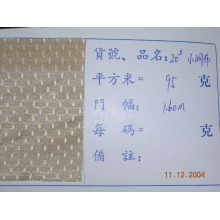 貨號、品名:20ˢ 小網布
平方米= 95 克
門 幅: 1.60m
每 碼= 克
備 註:
11.12.2004